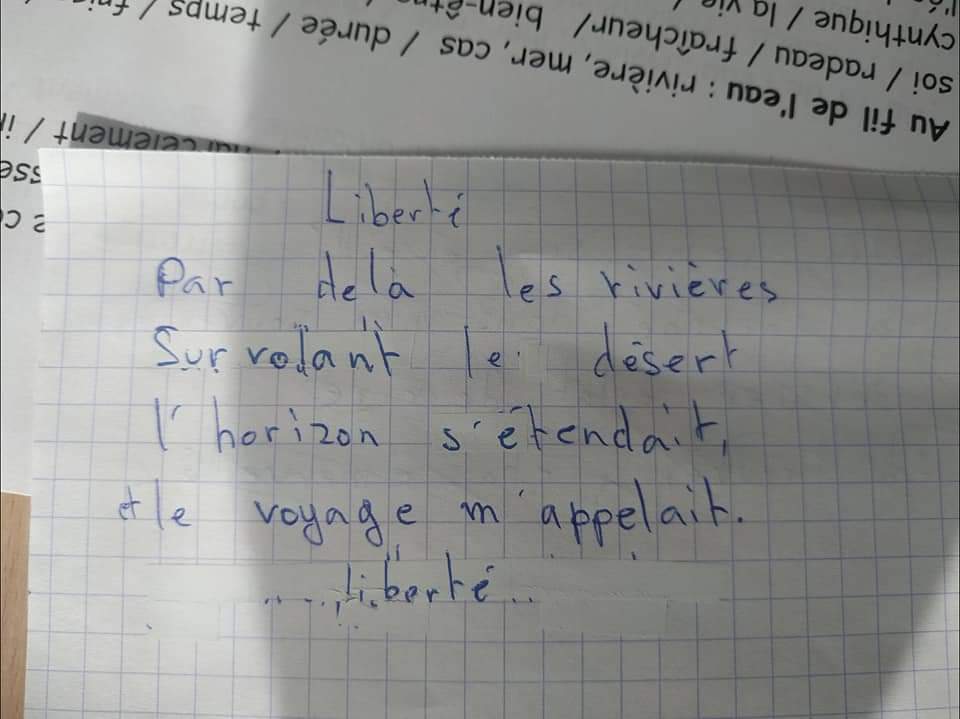 Au fil de l'eau : rivière, mer, cas / durée / temps /
soi / radeau / fraîcheur/ bien-être
cynthique / la vie /
Liberté
Par delà les rivières
Survolant le désert
l'horizon s'étendait,
et le voyage m'appelait.
.....liberté..